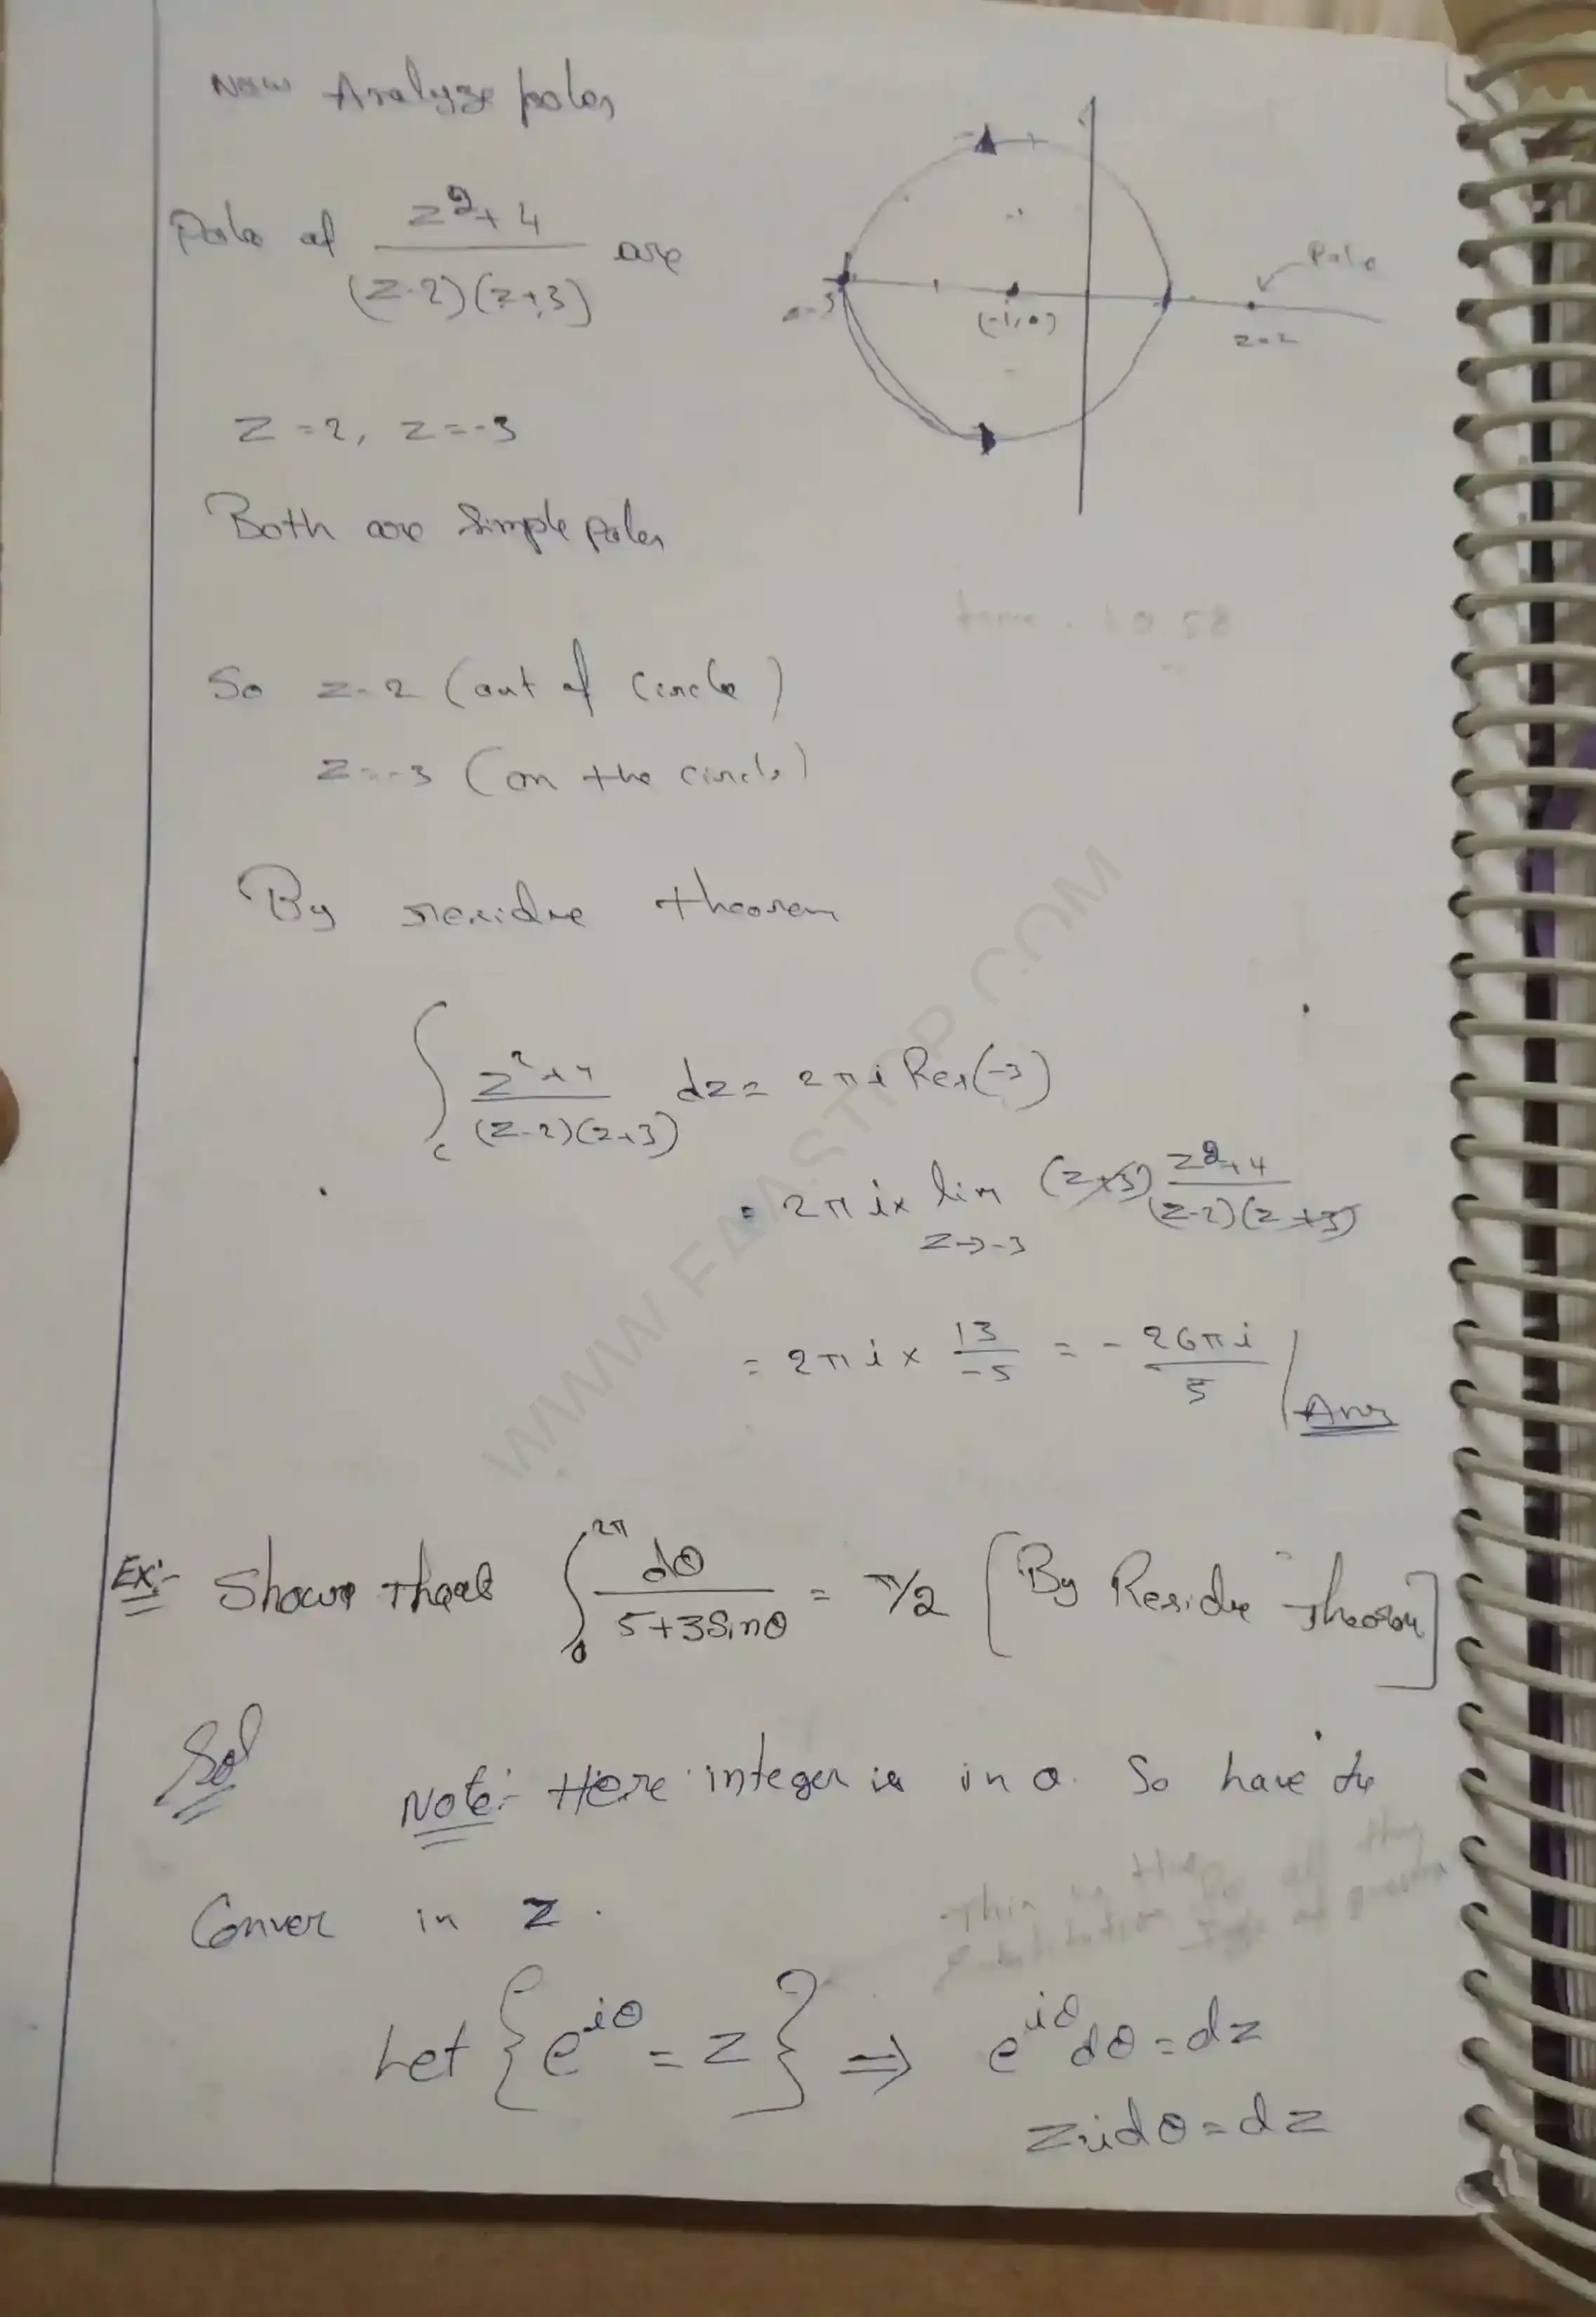 Now Analyze poles
Pole of z²+4 / (z-2)(z+3) are
Pole
z=-3
(-1,0)
z=2
z=2, z=-3
Both are Simple poles
So z=2 (out of circle)
z=-3 (on the circle)
By residue theorem
∫c z²+4 / (z-2)(z+3) dz = 2πi Res(-3)
= 2πi × lim z→-3 (z+3) z²+4 / (z-2)(z+3)
= 2πi × 13/-5 = - 26πi/5 Ans
Ex:- Show That ∫₀^2π dθ / 5+3Sinθ = π/2 [By Residue Theorem]
Sol
Note:- Here integer is in θ. So have to
Conver in z.
Let {e^iθ = z} ⇒ e^iθ dθ = dz
z.idθ = dz
WWW.FAASTOP.COM